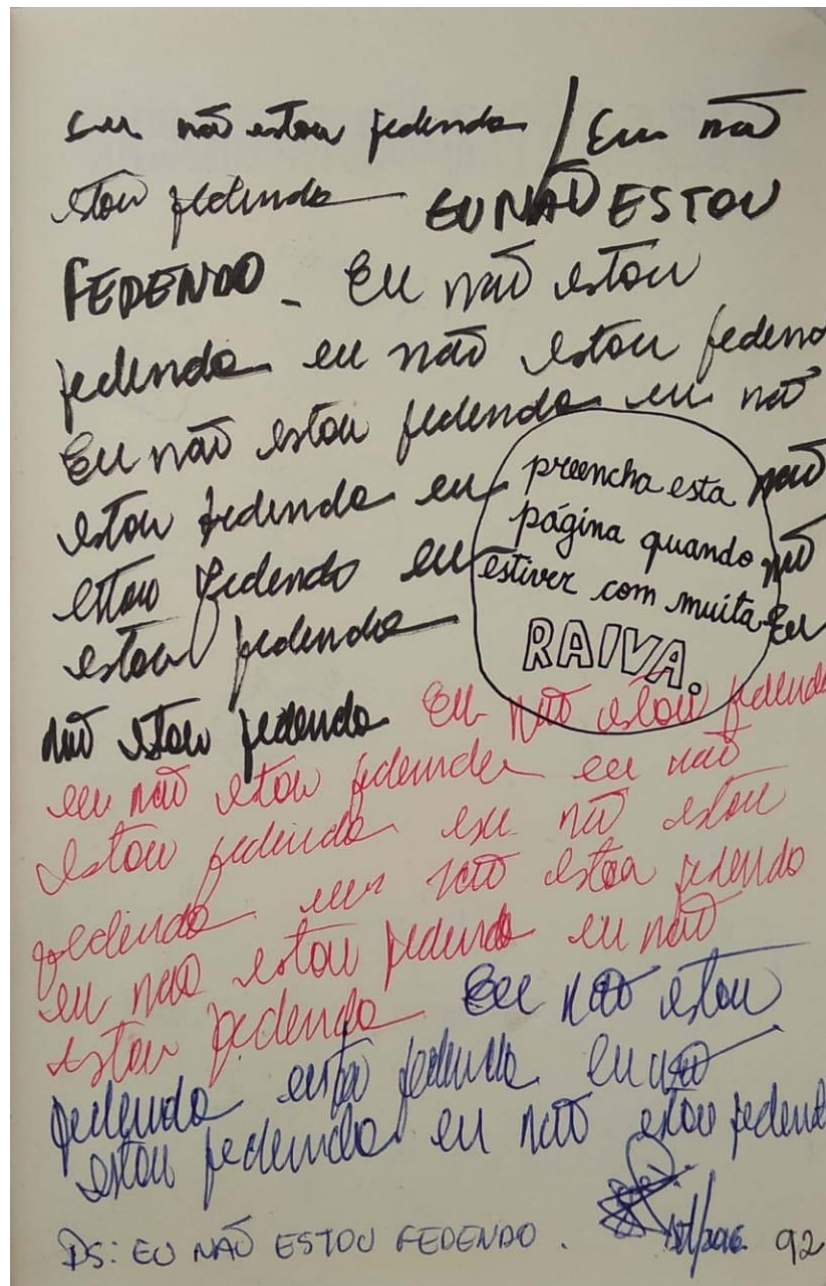 Eu não estou fedendo / Eu não
estou fedendo EU NÃO ESTOU
FEDENDO - Eu não estou
fedendo eu não estou fedend
Eu não estou fedendo eu não
estou fedendo eu não
estou fedendo eu não
estou fedendo Eu
preencha esta
página quando
estiver com muita
RAIVA.
não estou fedendo Eu não estou fedendo
eu não estou fedendo eu não
estou fedendo eu não estou
fedendo eu não estou fedendo
eu não estou fedendo eu não
estou fedendo Eu não estou
fedendo fedendo eu não
estou fedendo eu não estou fedend
PS: EU NÃO ESTOU FEDENDO.
92